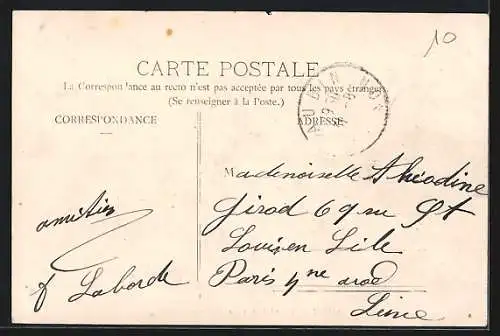 10
CARTE POSTALE
La Correspondance au recto n'est pas acceptée par tous les pays étrangers
(Se renseigner à la Poste.)
CORRESPONDANCE
ADRESSE
Mademoiselle Théodine
Girod 69 rue St
Louis en L'ile
Paris 4me
amitiés
f Laborde